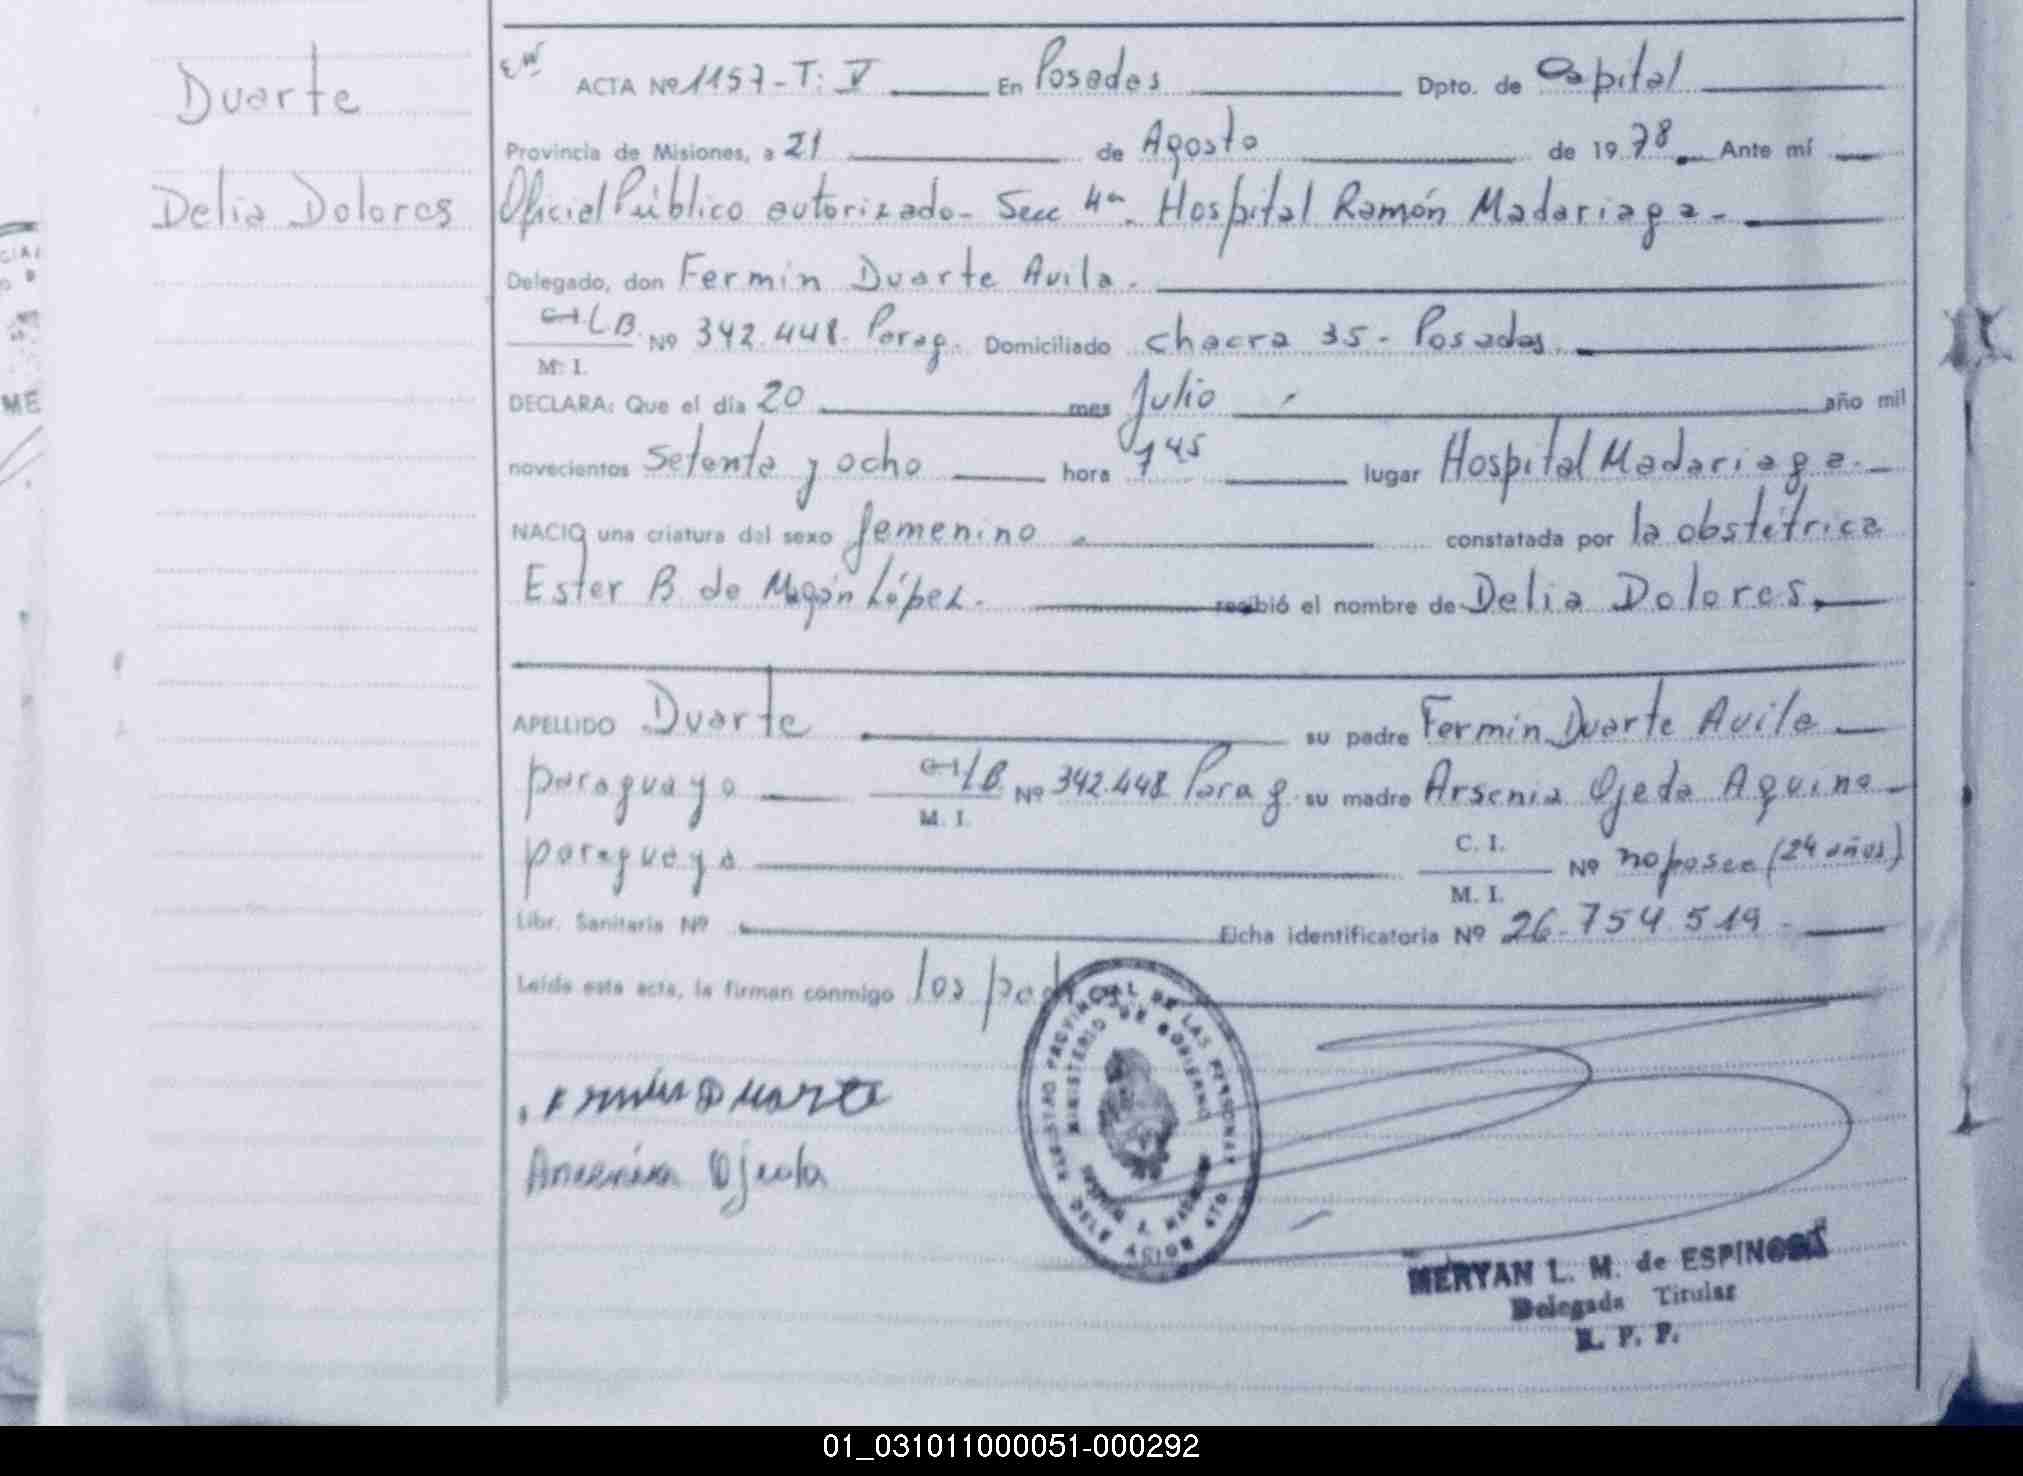 Duarte
Delia Dolores
ACTA Nº 1157 - T: V En Posadas Dpto. de Capital
Provincia de Misiones, a 21 de Agosto de 1978. Ante mí
Oficial Público autorizado - Secc 4ª. Hospital Ramón Madariaga -
Delegado, don Fermin Duarte Avila.
C.I. L.B. Nº 342.448. Parag. Domiciliado chacra 35 - Posadas.
M. I.
DECLARA: Que el día 20 mes Julio año mil
novecientos setenta y ocho hora 7 45 lugar Hospital Madariaga.
NACIO una criatura del sexo femenino constatada por la obstétrica
Ester B. de Magán López. recibió el nombre de Delia Dolores.
APELLIDO Duarte su padre Fermin Duarte Avila
paraguayo C.I. L.B. Nº 342.448 Parag. su madre Arsenia Ojeda Aquino
M. I.
paraguaya C. I. Nº no posee (24 años)
M. I.
Libr. Sanitaria Nº Ficha identificatoria Nº 26.754.519 -
Leída esta acta, la firman conmigo los padres
Duarte
Ojeda
REGISTRO PROVINCIAL DE LAS PERSONAS
MINISTERIO DE GOBIERNO
MERYAN L. M. de ESPINOSA
Delegada Titular
R. P. P.
01_031011000051-000292